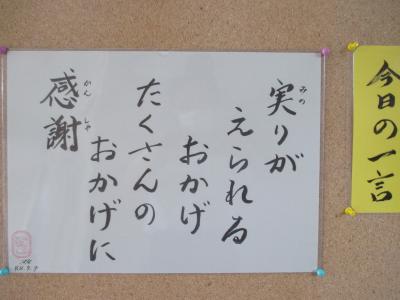 今日の一言
実りが
えられる
おかげ
たくさんの
おかげに
感謝
みの
かん
しゃ